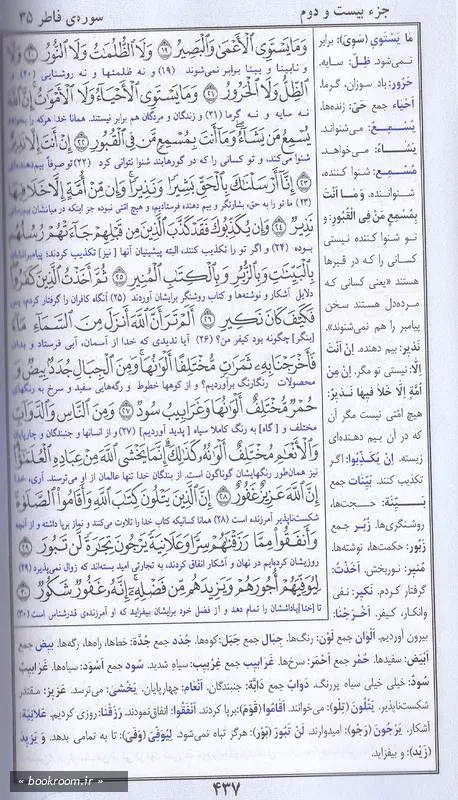 جزء بیست و دوم
سوره‌ی فاطر ۳۵
وَمَا يَسْتَوِى الْأَعْمَىٰ وَالْبَصِيرُ ﴿١٩﴾ وَلَا الظُّلُمَاتُ وَلَا النُّورُ ﴿٢٠﴾ وَلَا
و نابینا و بینا برابر نمی‌شوند (۱۹) و نه ظلمتها و نه روشنایی (۲۰) و
الظِّلُّ وَلَا الْحَرُورُ ﴿٢١﴾ وَمَا يَسْتَوِى الْأَحْيَاءُ وَلَا الْأَمْوَاتُ إِنَّ اللَّهَ
نه سایه و نه گرما (۲۱) و زندگان و مردگان هم برابر نیستند. همانا خدا هرکه را بخواهد
يُسْمِعُ مَن يَشَاءُ وَمَا أَنتَ بِمُسْمِعٍ مَّن فِى الْقُبُورِ ﴿٢٢﴾ إِنْ أَنتَ إِلَّا نَذِيرٌ
شنوا می‌کند، و تو کسانی را که در گورهایند شنوا نتوانی کرد (۲۲) تو صرفاً بیم‌دهنده‌ای
﴿٢٣﴾ إِنَّا أَرْسَلْنَاكَ بِالْحَقِّ بَشِيرًا وَنَذِيرًا وَإِن مِّنْ أُمَّةٍ إِلَّا خَلَا فِيهَا
(۲۳) ما تو را به حق، بشارتگر و بیم دهنده فرستادیم، و هیچ امّتی نبوده جز اینکه در میانشان بیم
نَذِيرٌ ﴿٢٤﴾ وَإِن يُكَذِّبُوكَ فَقَدْ كَذَّبَ الَّذِينَ مِن قَبْلِهِمْ جَاءَتْهُمْ رُسُلُهُم
بوده (۲۴) و اگر تو را تکذیب کنند، البته پیشینیان آنها [نیز] تکذیب کردند؛ پیامبرانشان
بِالْبَيِّنَاتِ وَبِالزُّبُرِ وَبِالْكِتَابِ الْمُنِيرِ ﴿٢٥﴾ ثُمَّ أَخَذْتُ الَّذِينَ كَفَرُوا
دلایل آشکار و نوشته‌ها و کتاب روشنگر برایشان آوردند (۲۵) آنگاه کافران را گرفتار کردم، پس
فَكَيْفَ كَانَ نَكِيرِ ﴿٢٦﴾ أَلَمْ تَرَ أَنَّ اللَّهَ أَنزَلَ مِنَ السَّمَاءِ مَاءً
[بنگر] چگونه بود کیفر من؟ (۲۶) آیا ندیدی که خدا از آسمان، آبی فرستاد و بدان
فَأَخْرَجْنَا بِهِ ثَمَرَاتٍ مُّخْتَلِفًا أَلْوَانُهَا وَمِنَ الْجِبَالِ جُدَدٌ بِيضٌ وَ
محصولات رنگارنگ برآوردیم؟ و از کوهها خطوط و رگه‌هایی سفید و سرخ به رنگهای
حُمْرٌ مُّخْتَلِفٌ أَلْوَانُهَا وَغَرَابِيبُ سُودٌ ﴿٢٧﴾ وَمِنَ النَّاسِ وَالدَّوَابِّ
مختلف و [گاه] به رنگ کاملا سیاه [پدید آوردیم] (۲۷) و از انسانها و جنبندگان و چارپایان
وَالْأَنْعَامِ مُخْتَلِفٌ أَلْوَانُهُ كَذَٰلِكَ إِنَّمَا يَخْشَى اللَّهَ مِنْ عِبَادِهِ الْعُلَمَاءُ
نیز همان‌طور رنگهایشان گوناگون است. از بندگان خدا تنها عالمان از او می‌ترسند. آری، خدا
إِنَّ اللَّهَ عَزِيزٌ غَفُورٌ ﴿٢٨﴾ إِنَّ الَّذِينَ يَتْلُونَ كِتَابَ اللَّهِ وَأَقَامُوا الصَّلَاةَ
شکست‌ناپذیر آمرزنده است (۲۸) همانا کسانیکه کتاب خدا را تلاوت می‌کنند و نماز برپا داشته و از آنچه
وَأَنفَقُوا مِمَّا رَزَقْنَاهُمْ سِرًّا وَعَلَانِيَةً يَرْجُونَ تِجَارَةً لَّن تَبُورَ ﴿٢٩﴾
روزیشان کرده‌ایم در نهان و آشکار انفاق کردند، به تجارتی امید بسته‌اند که زوال نمی‌پذیرد (۲۹)
لِيُوَفِّيَهُمْ أُجُورَهُمْ وَيَزِيدَهُم مِّن فَضْلِهِ إِنَّهُ غَفُورٌ شَكُورٌ ﴿٣٠﴾
تا [خدا] پاداششان را تمام دهد و از فضل خود برایشان بیفزاید که او آمرزنده‌ی قدرشناس است (۳۰)
مَا يَسْتَوِى (سَوِىَ): برابر
نمی‌شود. ظِلّ: سایه.
حَرُور: باد سوزان، گرما.
أَحْيَاء جمع حَىّ: زنده‌ها.
يُسْمِعُ: می‌شنواند.
يَشَاءُ: می‌خواهد.
مُسْمِع: شنوا کننده،
شنواننده. وَ مَا أَنْتَ
بِمُسْمِعٍ مَنْ فِى الْقُبُورِ: و
تو شنوا کننده نیستی
کسانی را که در قبرها
هستند «یعنی کسانی که
مرده‌دل هستند سخن
پیامبر را هم نمی‌شنوند».
نَذِير: بیم دهنده. إِنْ أَنْتَ
إِلَّا: نیستی تو مگر. إِنْ مِنْ
أُمَّةٍ إِلَّا خَلَا فِيهَا نَذِيرٌ:
هیچ امّتی نیست مگر آن
که در آن بیم دهنده‌ای
زیسته. إِنْ يُكَذِّبُوا: اگر
تکذیب کنند. بَيِّنَات جمع
بَيِّنَة: حجت‌ها،
روشنگری‌ها. زُبُر جمع
زَبُور: حکمت‌ها، نوشته‌ها.
مُنِير: نوربخش. أَخَذْتُ:
گرفتار کردم. نَكِيرِ: نفی
وانکار، کیفر. أَخْرَجْنَا:
بیرون آوردیم. أَلْوَان جمع لَوْن: رنگ‌ها. جِبَال جمع جَبَل: کوه‌ها. جُدَد جمع جُدَّة: خطها، راه‌ها، رگه‌ها. بِيض جمع
أَبْيَض: سفیدها. حُمْر جمع أَحْمَر: سرخ‌ها. غَرَابِيب جمع غِرْبِيب: سیاهِ شدید. سُود جمع أَسْوَد: سیاه‌ها. غَرَابِيبُ
سُود: خیلی خیلی سیاه پررنگ. دَوَابّ جمع دَابَّة: جنبندگان. أَنْعَام: چهارپایان. يَخْشَىٰ: می‌ترسد. عَزِيز: مقتدر
شکست‌ناپذیر. يَتْلُونَ (تِلْو): می‌خوانند. أَقَامُوا (قَوَمَ): برپا کردند. أَنْفَقُوا: انفاق‌نمودند. رَزَقْنَا: روزی کردیم. عَلَانِيَة:
آشکار. يَرْجُونَ (رَجَوَ): امیدوارند. لَنْ تَبُورَ (بَوَرَ): هرگز تباه نمی‌شود. لِيُوَفِّىَ (وَفَىَ): تا به تمامی بدهد. وَ يَزِيدَ
(زَيْد): و بیفزاید.
۴۳۷
« bookroom.ir »